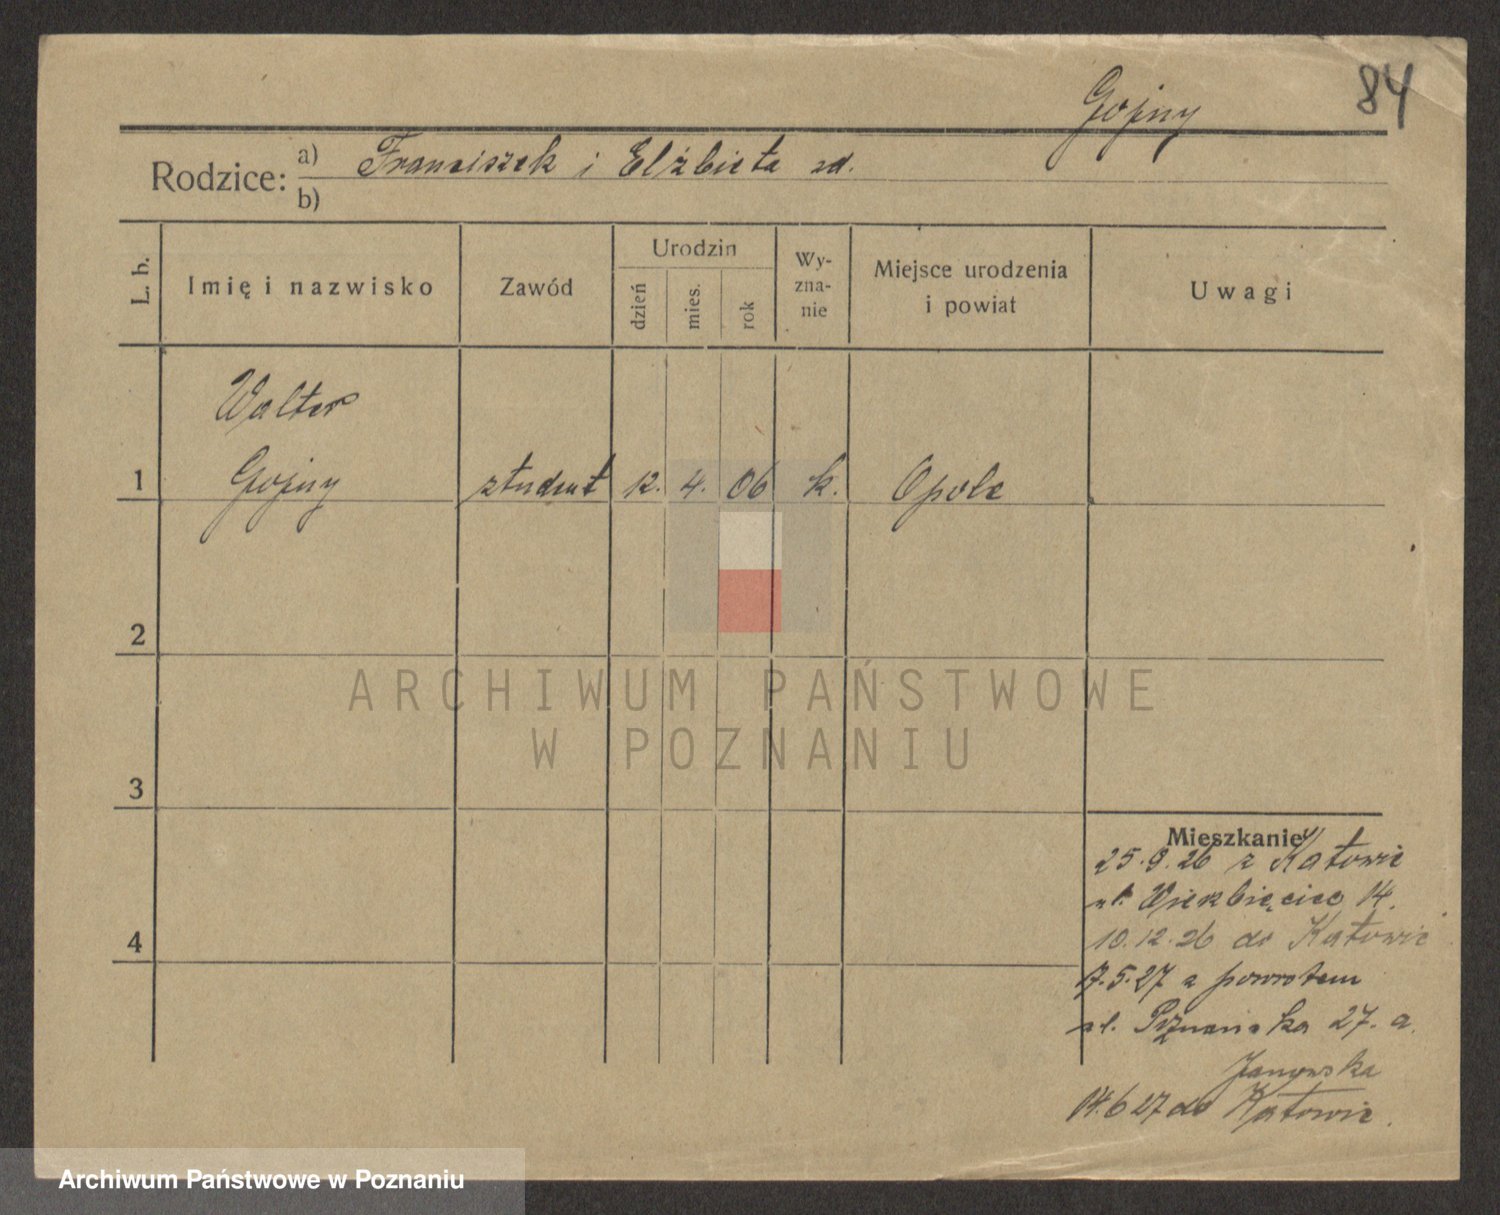 84
Gojny
Rodzice: a) Franciszek i Elżbieta zd.
b)
L. b.
Imię i nazwisko
Zawód
Urodzin
dzień
mies.
rok
Wy-
zna-
nie
Miejsce urodzenia
i powiat
Uwagi
Walter
1 Gojny student 12. 4. 06 k. Opole
2
3
4
ARCHIWUM PAŃSTWOWE
W POZNANIU
Mieszkanie
25.9.26 z Katowic
ul. 14.
10.12.26 do Katowic
7.5.27 z powrotem
ul. Poznańska 27. a.
Janowska
14.6 27 do Katowic.
Archiwum Państwowe w Poznaniu